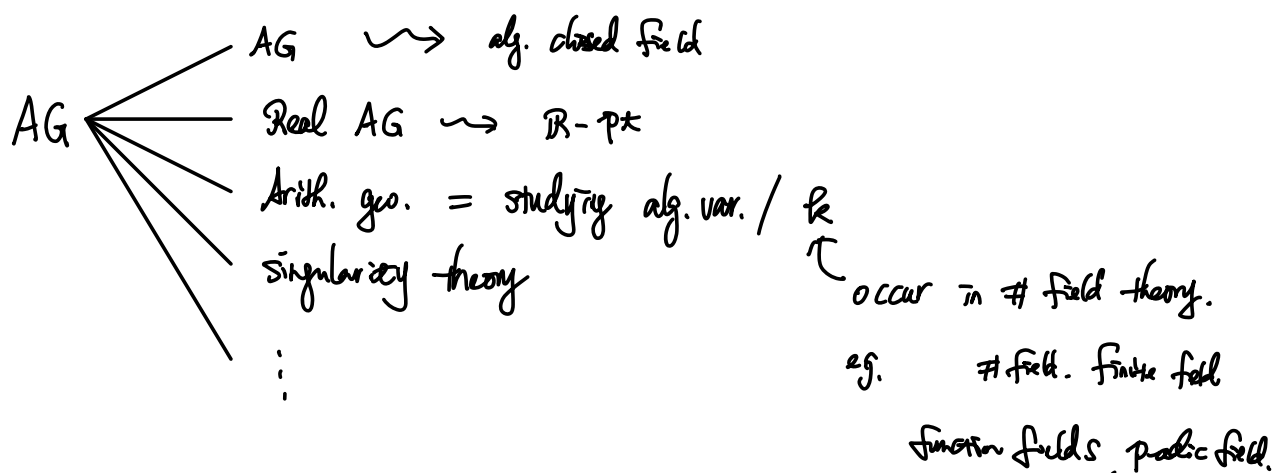 AG ⇝ alg. closed field
AG
Real AG ⇝ ℝ-pt
Arith. geo. = studying alg. var. / k
singularity theory
occur in # field theory.
eg. # field. finite field
⋮
function fields, p-adic field.